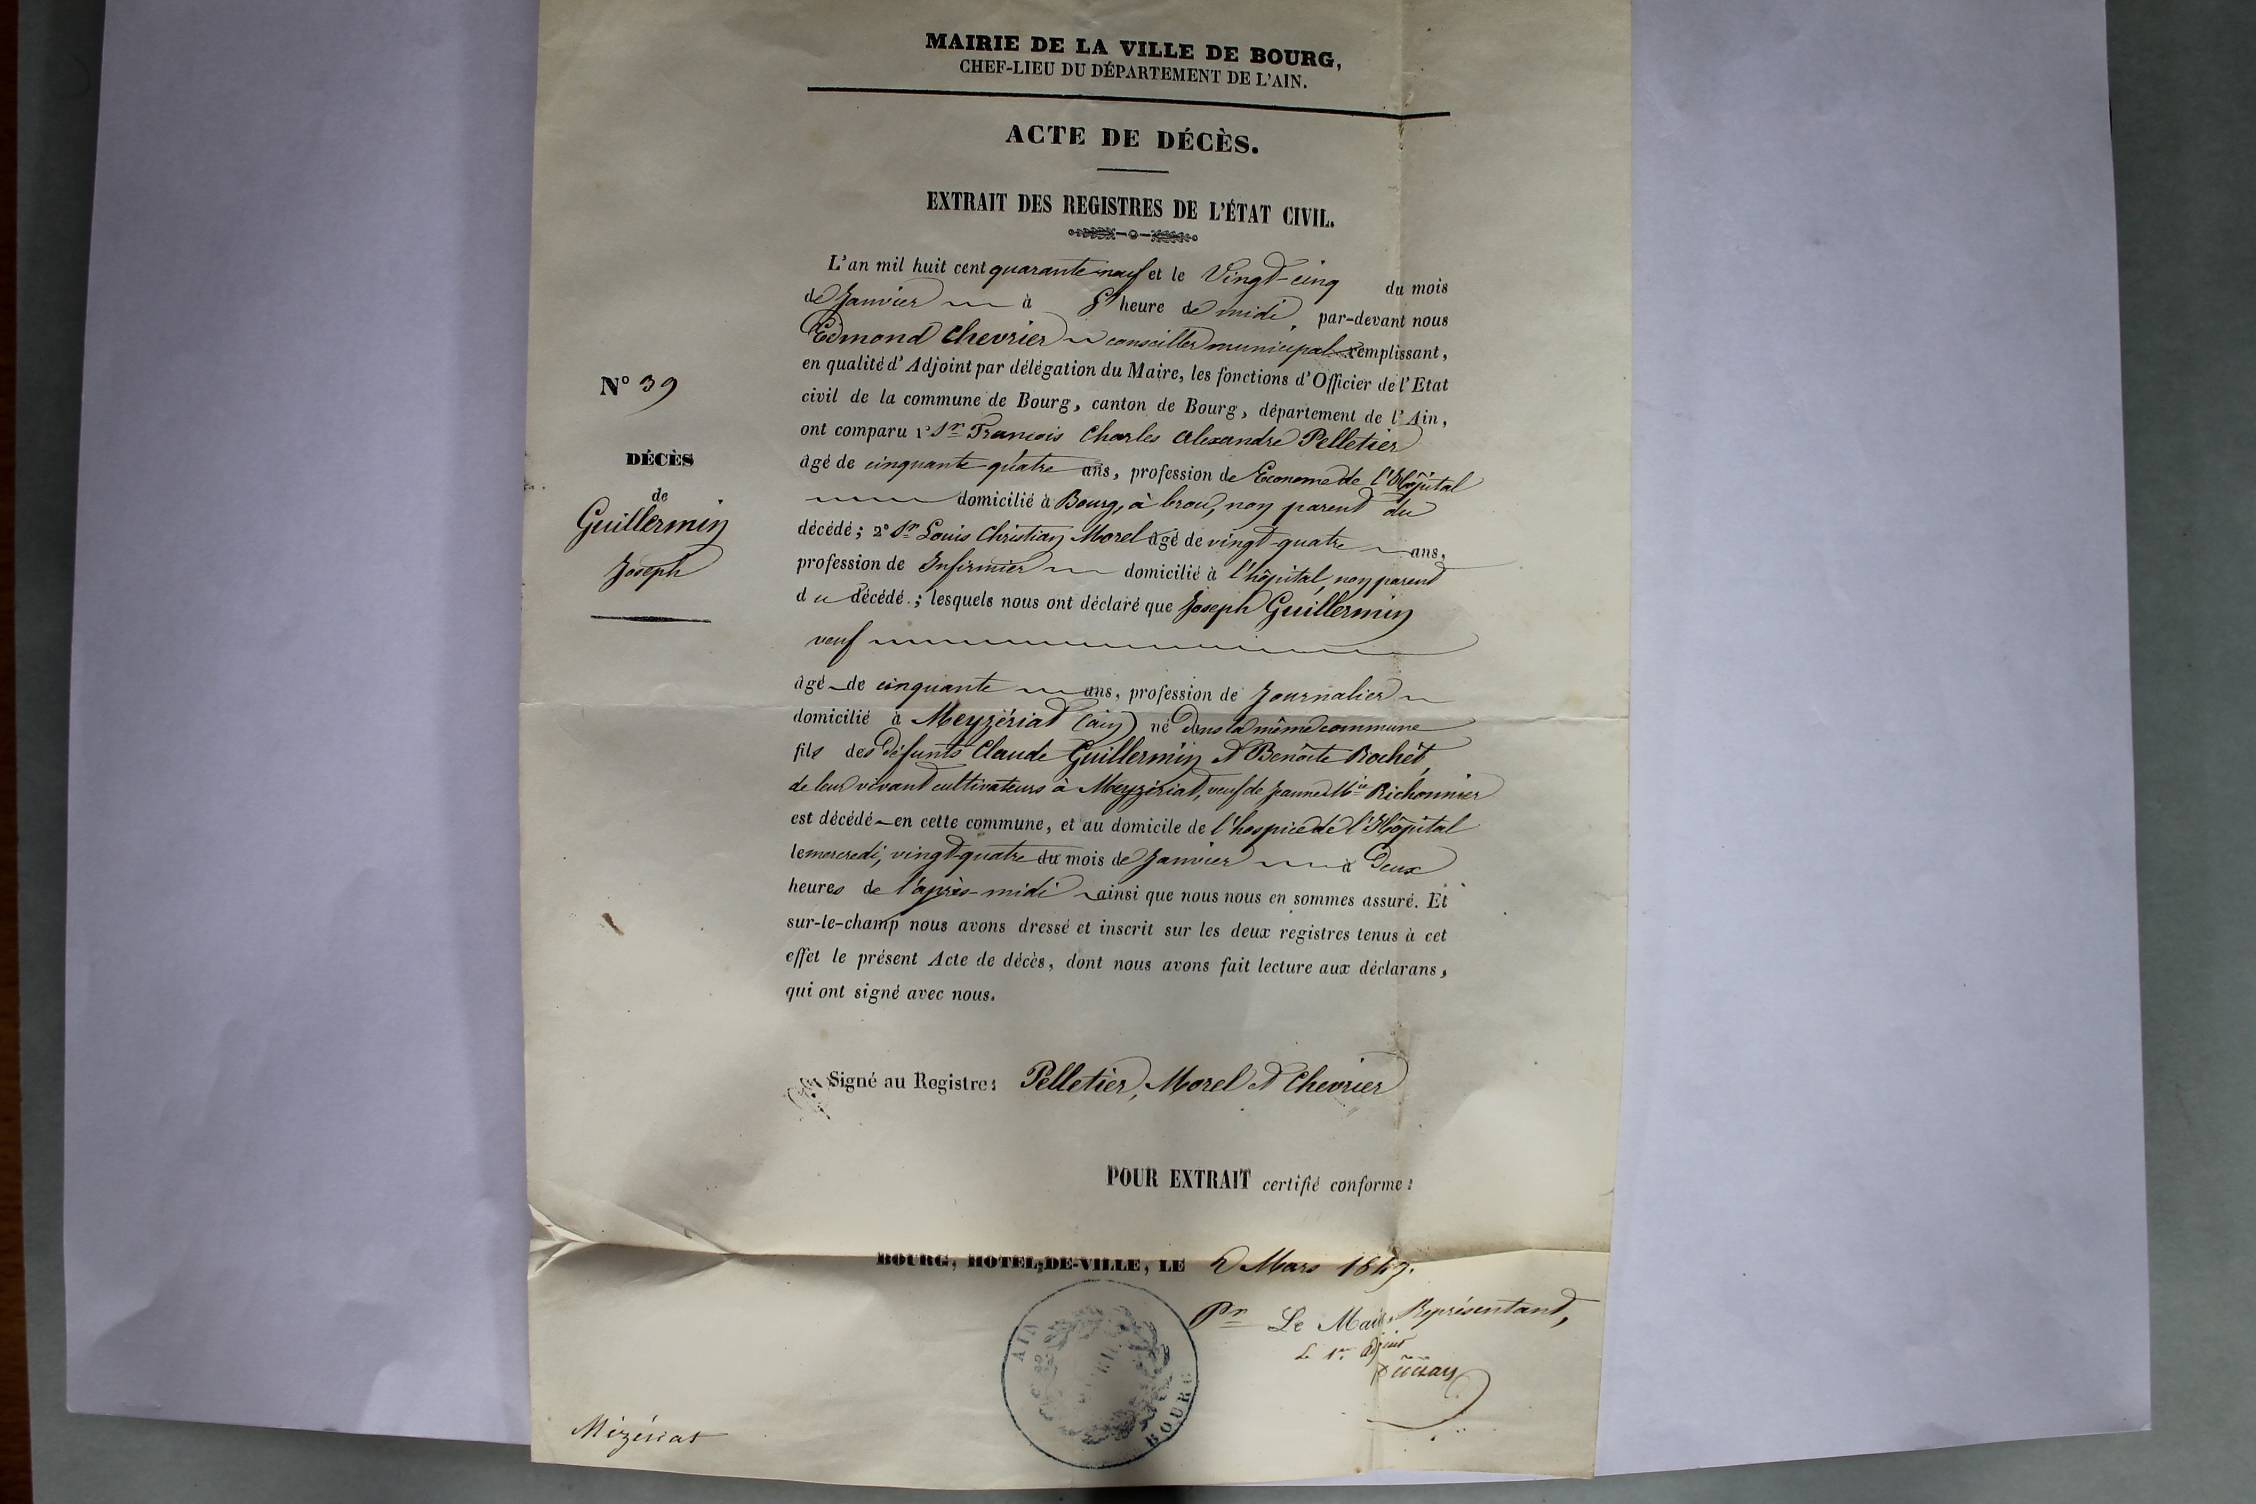 MAIRIE DE LA VILLE DE BOURG,
CHEF-LIEU DU DÉPARTEMENT DE L'AIN.
ACTE DE DÉCÈS.
EXTRAIT DES REGISTRES DE L'ÉTAT CIVIL.
N° 39
DÉCÈS
de
Guillermin
Joseph
L'an mil huit cent quarante-neuf et le Vingt-cinq du mois
de Janvier à l'heure de midi, par-devant nous
Edmond Chevrier conseiller municipal remplissant,
en qualité d'Adjoint par délégation du Maire, les fonctions d'Officier de l'Etat
civil de la commune de Bourg, canton de Bourg, département de l'Ain,
ont comparu 1° Sr François Charles Alexandre Pelletier
âgé de cinquante-quatre ans, profession de Econome de l'Hôpital
domicilié à Bourg, à brou, non parent du
décédé; 2° Sr Louis Christian Morel âgé de vingt-quatre ans,
profession de Infirmier domicilié à l'hôpital, non parent
du décédé; lesquels nous ont déclaré que Joseph Guillermin
veuf
âgé de cinquante ans, profession de Journalier
domicilié à Meyzériat (ain) né dans la même commune
fils des défunts Claude Guillermin et Benôite Rochet,
de leur vivant cultivateurs à Meyzériat, veuf de Jeanne Mie Richonnier
est décédé en cette commune, et au domicile de l'hospice de l'Hôpital
le mercredi, vingt-quatre du mois de Janvier à Deux
heures de l'après-midi ainsi que nous nous en sommes assuré. Et
sur-le-champ nous avons dressé et inscrit sur les deux registres tenus à cet
effet le présent Acte de décès, dont nous avons fait lecture aux déclarans,
qui ont signé avec nous.
Signé au Registre: Pelletier, Morel et Chevrier
POUR EXTRAIT certifié conforme:
BOURG, HOTEL-DE-VILLE, LE 2 Mars 1849.
Pr Le Maire, Représentant,
Le 1er adjoint
AIN
BOURG
Mézériat